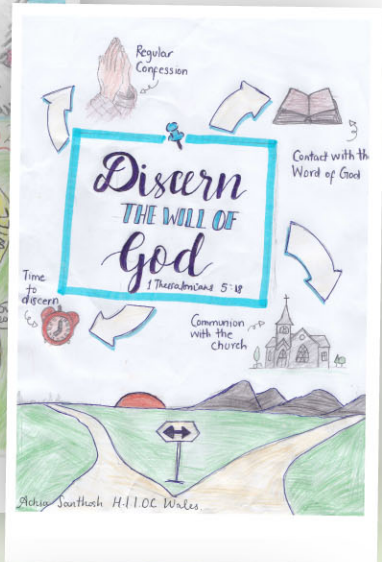 Regular
Confession
Contact with the
Word of God
Discern
THE WILL OF
God
1 Thessalonians 5:18
Time
to
discern
Communion
with the
church
Santhosh
Wales